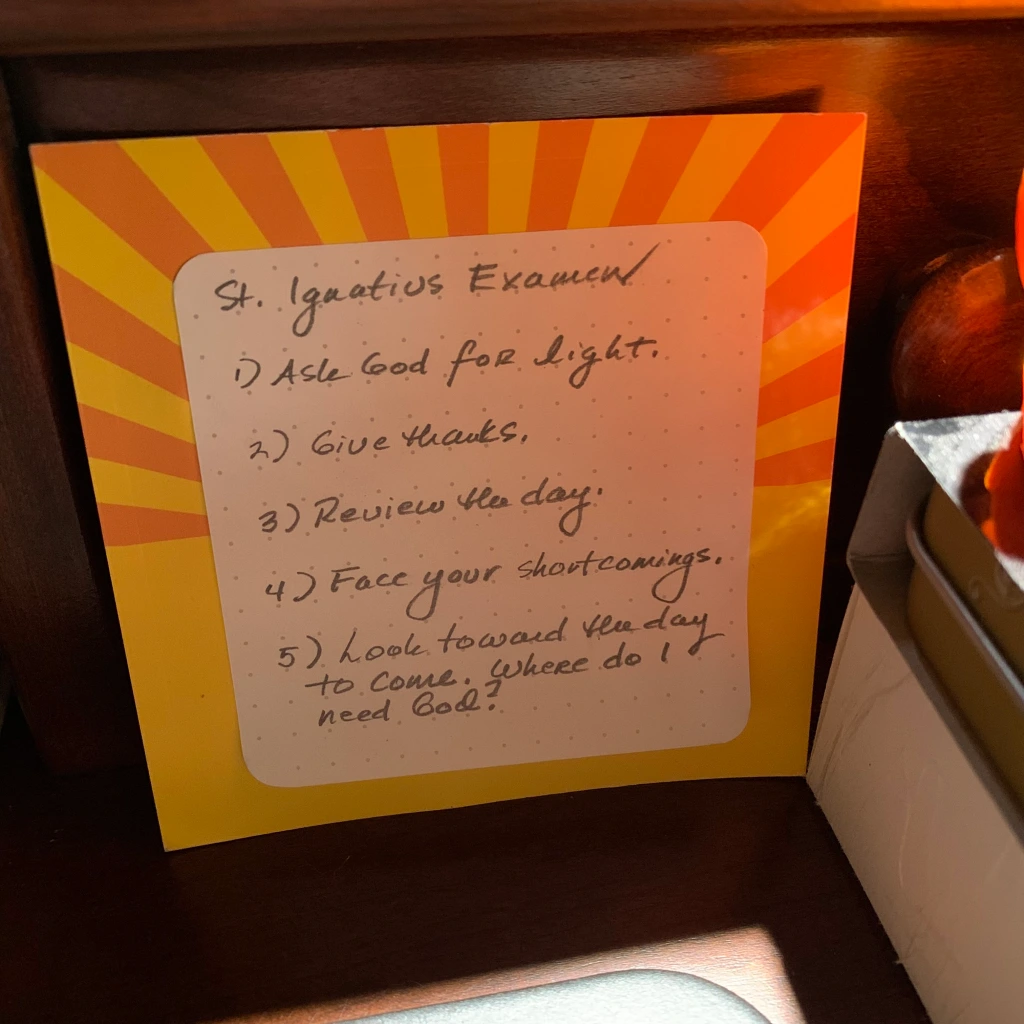 St. Ignatius Examen
1) Ask God for light.
2) Give thanks.
3) Review the day.
4) Face your shortcomings.
5) Look toward the day
to come. Where do I
need God?